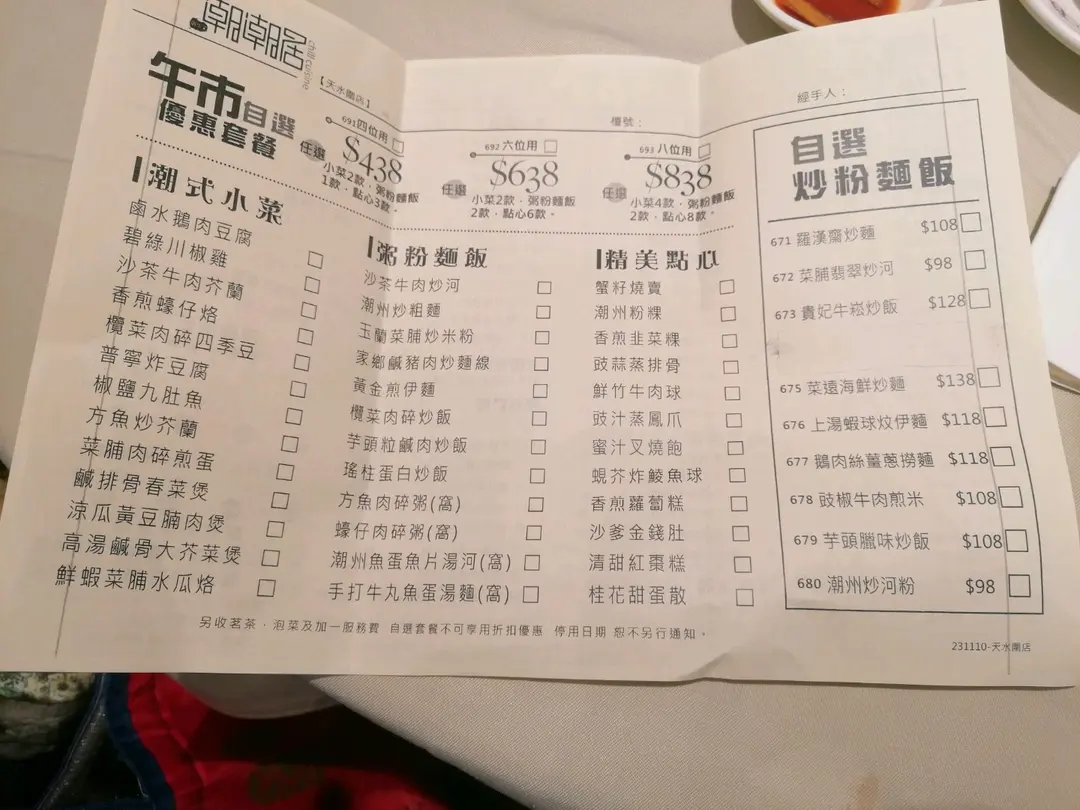 潮潮居
chill cuisine
【天水圍店】
午市自選
優惠套餐
經手人：
檯號：
691 四位用
任選 $438
小菜2款．粥粉麵飯
1款．點心3款。
692 六位用
任選 $638
小菜2款．粥粉麵飯
2款．點心6款。
693 八位用
任選 $838
小菜4款．粥粉麵飯
2款．點心8款。
潮式小菜
鹵水鵝肉豆腐
碧綠川椒雞
沙茶牛肉芥蘭
香煎蠔仔烙
欖菜肉碎四季豆
普寧炸豆腐
椒鹽九肚魚
方魚炒芥蘭
菜脯肉碎煎蛋
鹹排骨春菜煲
涼瓜黃豆腩肉煲
高湯鹹骨大芥菜煲
鮮蝦菜脯水瓜烙
粥粉麵飯
沙茶牛肉炒河
潮州炒粗麵
玉蘭菜脯炒米粉
家鄉鹹豬肉炒麵線
黃金煎伊麵
欖菜肉碎炒飯
芋頭粒鹹肉炒飯
瑤柱蛋白炒飯
方魚肉碎粥(窩)
蠔仔肉碎粥(窩)
潮州魚蛋魚片湯河(窩)
手打牛丸魚蛋湯麵(窩)
精美點心
蟹籽燒賣
潮州粉粿
香煎韭菜粿
豉蒜蒸排骨
鮮竹牛肉球
豉汁蒸鳳爪
蜜汁叉燒飽
蜆芥炸鯪魚球
香煎蘿蔔糕
沙爹金錢肚
清甜紅棗糕
桂花甜蛋散
自選
炒粉麵飯
671 羅漢齋炒麵 $108
672 菜脯翡翠炒河 $98
673 貴妃牛崧炒飯 $128
675 菜遠海鮮炒麵 $138
676 上湯蝦球炆伊麵 $118
677 鵝肉絲薑蔥撈麵 $118
678 豉椒牛肉煎米 $108
679 芋頭臘味炒飯 $108
680 潮州炒河粉 $98
另收茗茶．泡菜及加一服務費 自選套餐不可享用折扣優惠 停用日期 恕不另行通知。
231110-天水圍店